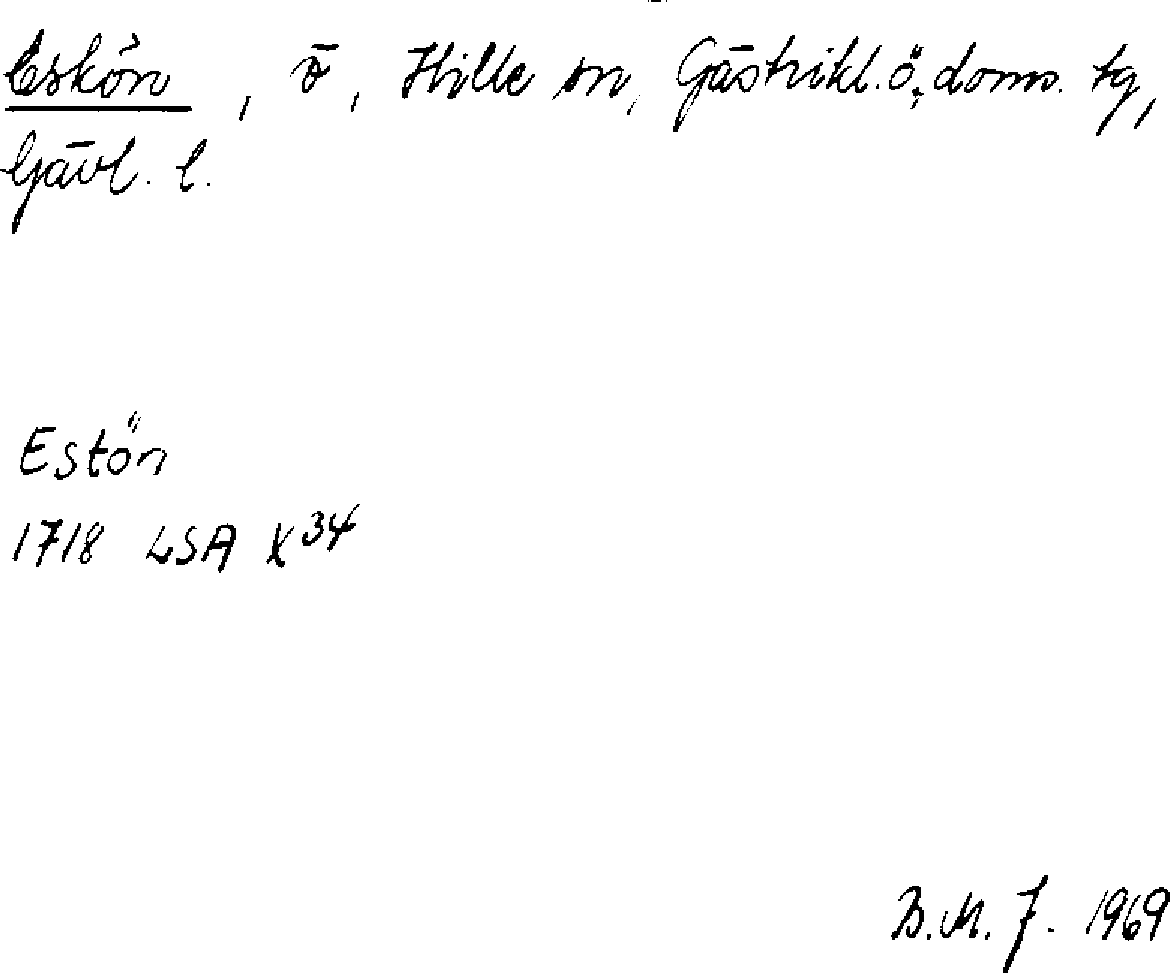 Eskön, ö, Hille sn, Gästrikl. ö. doms. tg,
Gävl. l.
Estön
1718 LSA X34
B. M. J. 1969